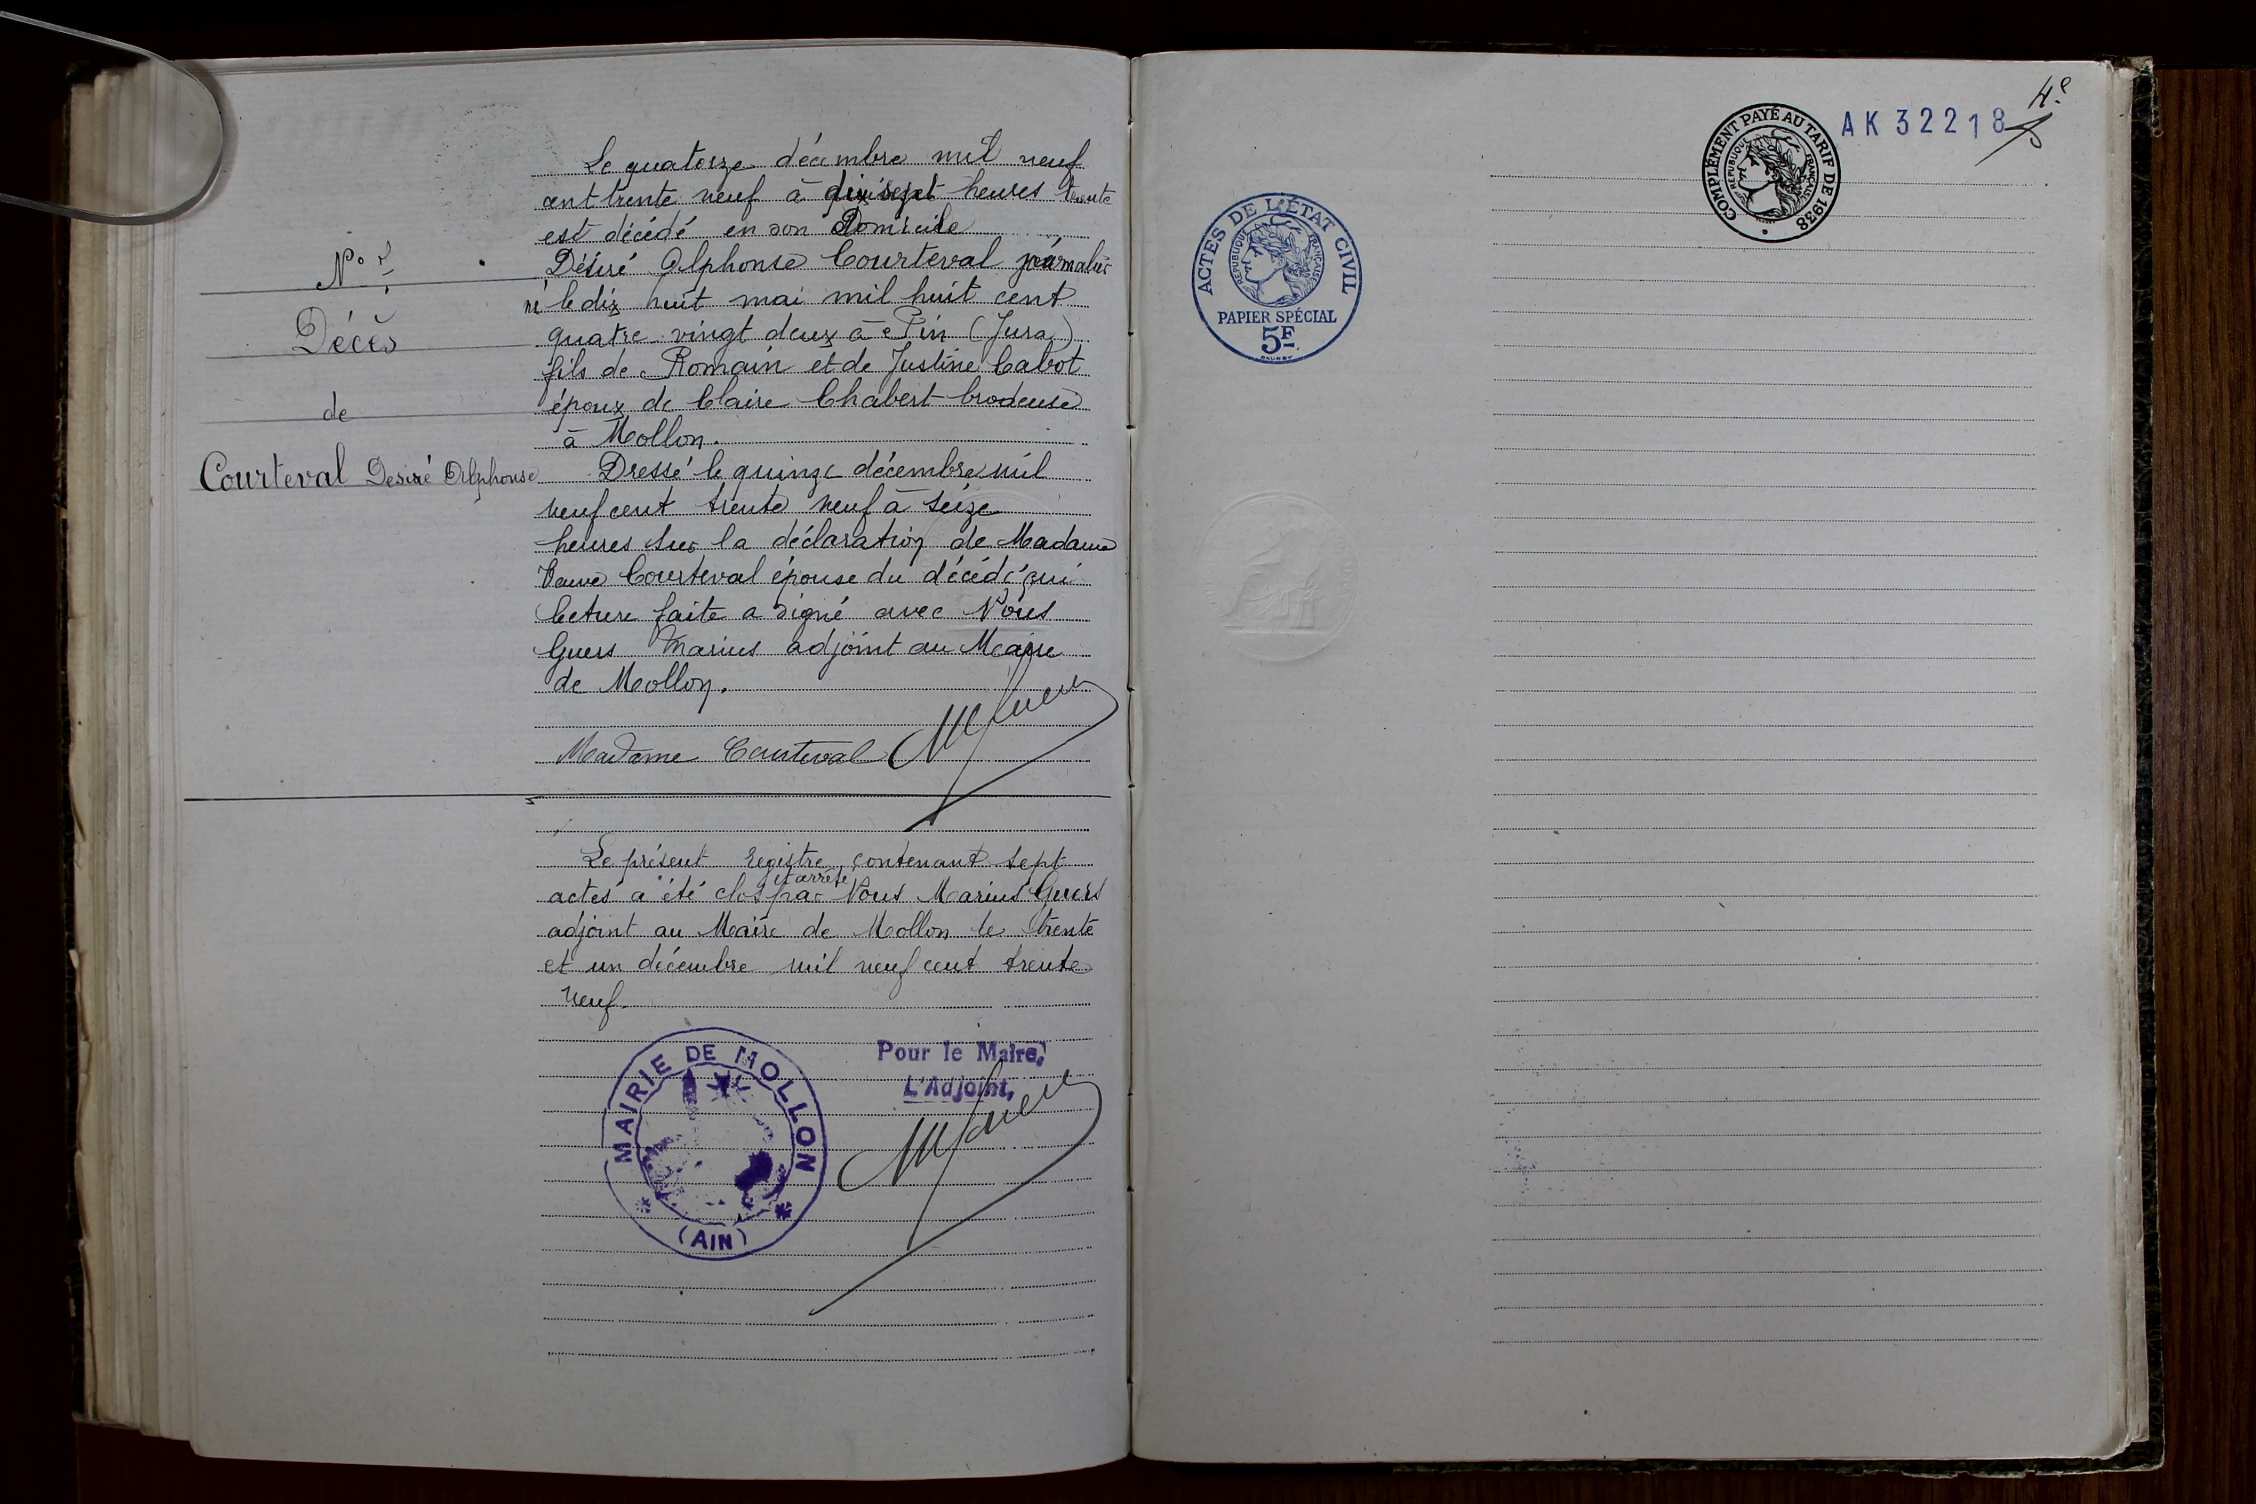 Le quatorze décembre mil neuf
cent trente neuf à dix sept heures trente
est décédé en son Domicile
Désiré Alphonse Courteval journalier
né le dix huit mai mil huit cent
quatre vingt deux à Pin (Jura)
fils de Romain et de Justine Cabot
époux de Claire Chabert brodeuse
à Mollon.
N°
Décès
de
Courteval Desiré Alphonse
Dressé le quinze décembre mil
neuf cent trente neuf à seize
heures sur la déclaration de Madame
Veuve Courteval épouse du décédé qui
lecture faite a signé avec Nous
Guers Marius adjoint au Maire
de Mollon.
Madame Courteval MGuers
Le présent registre contenant sept
actes a été clos et arrêté par Nous Marius Guers
adjoint au Maire de Mollon le trente
et un décembre mil neuf cent trente
neuf.
MAIRIE DE MOLLON
(AIN)
Pour le Maire,
L'Adjoint,
MGuers
ACTES DE L'ÉTAT CIVIL
RÉPUBLIQUE FRANÇAISE
PAPIER SPÉCIAL
5F
COMPLÉMENT PAYÉ AU TARIF DE 1938
RÉPUBLIQUE FRANÇAISE
AK 32218
4e